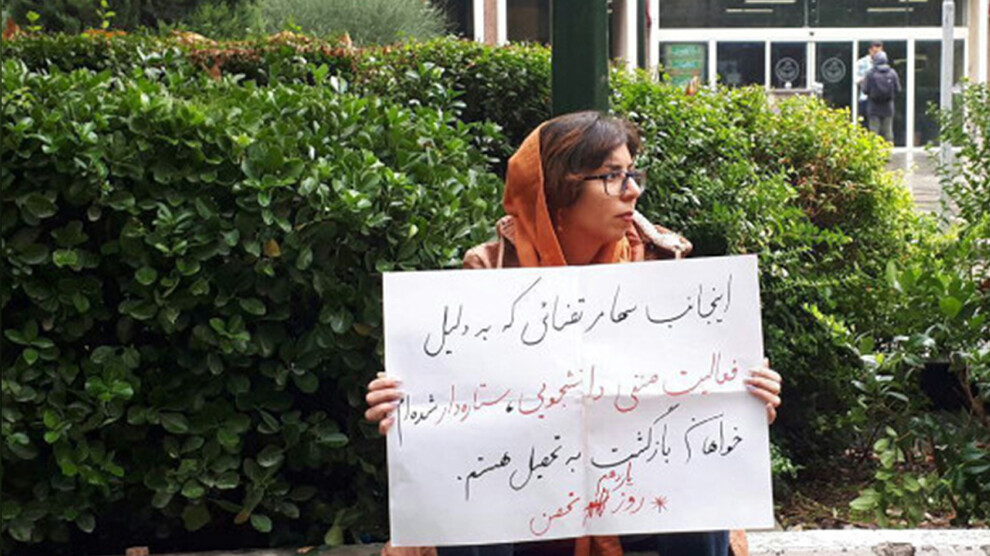 اینجانب سها مرتضائی که به دلیل
فعالیت صنفی دانشجویی، ستاره‌دار شده‌ام
خواهان بازگشت به تحصیل هستم.
* روز یازدهم تحصن